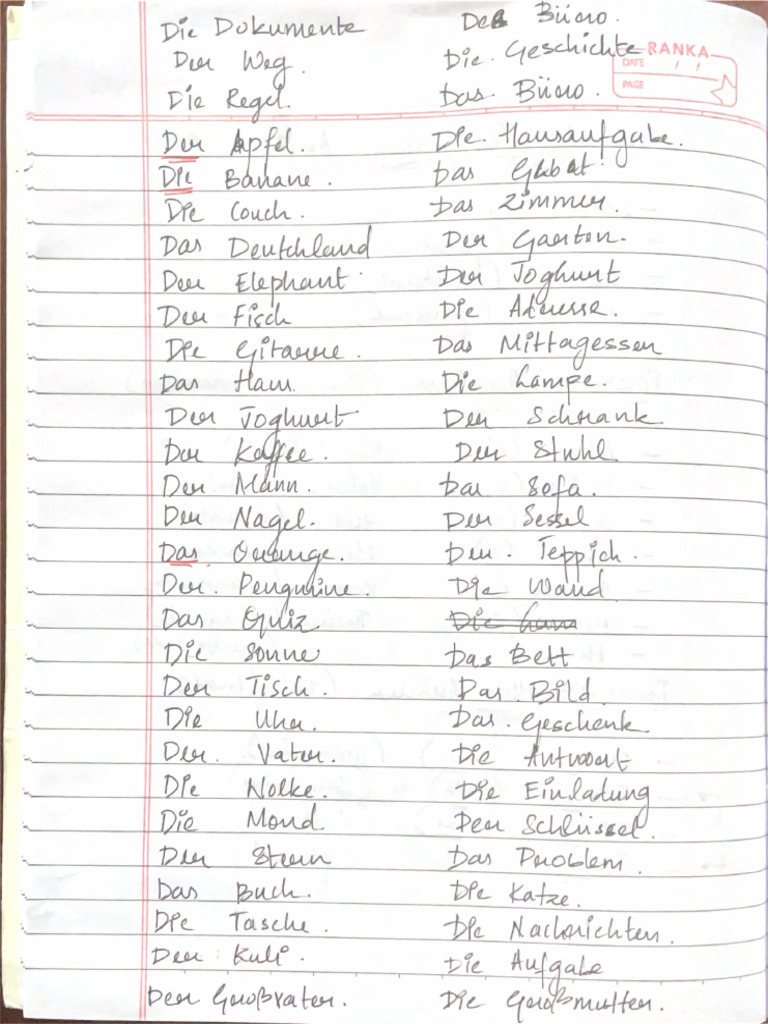 Die Dokumente Der Büro.
Der Weg. Die Geschichte.
RANKA
DATE / /
PAGE
Die Regel. Das Büro.
Der Apfel. Die Hausaufgabe.
Die Banane. Das
Die Couch. Das Zimmer.
Das Deutchland Der Garten.
Der Elephant Der Joghurt
Der Fisch Die Adresse.
Die Gitarre. Das Mittagessen
Das Haus. Die Lampe.
Der Joghurt Der Schrank.
Der Kaffee. Der Stuhl.
Der Mann. Das Sofa.
Der Nagel. Der Sessel
Das Orange. Der. Teppich.
Der. Penguine. Die Wand
Das Quiz
Die Sonne Das Bett
Der Tisch. Das. Bild.
Die Uhr. Das. Geschenk
Der. Vater. Die Antwort
Die Wolke. Die Einladung
Die Mond. Der Schlüssel.
Der Stern Das Problem.
Das Buch. Die Katze.
Die Tasche. Die Nachrichten.
Der Kuli. Die Aufgabe
Der Großvater. Die Großmutter.